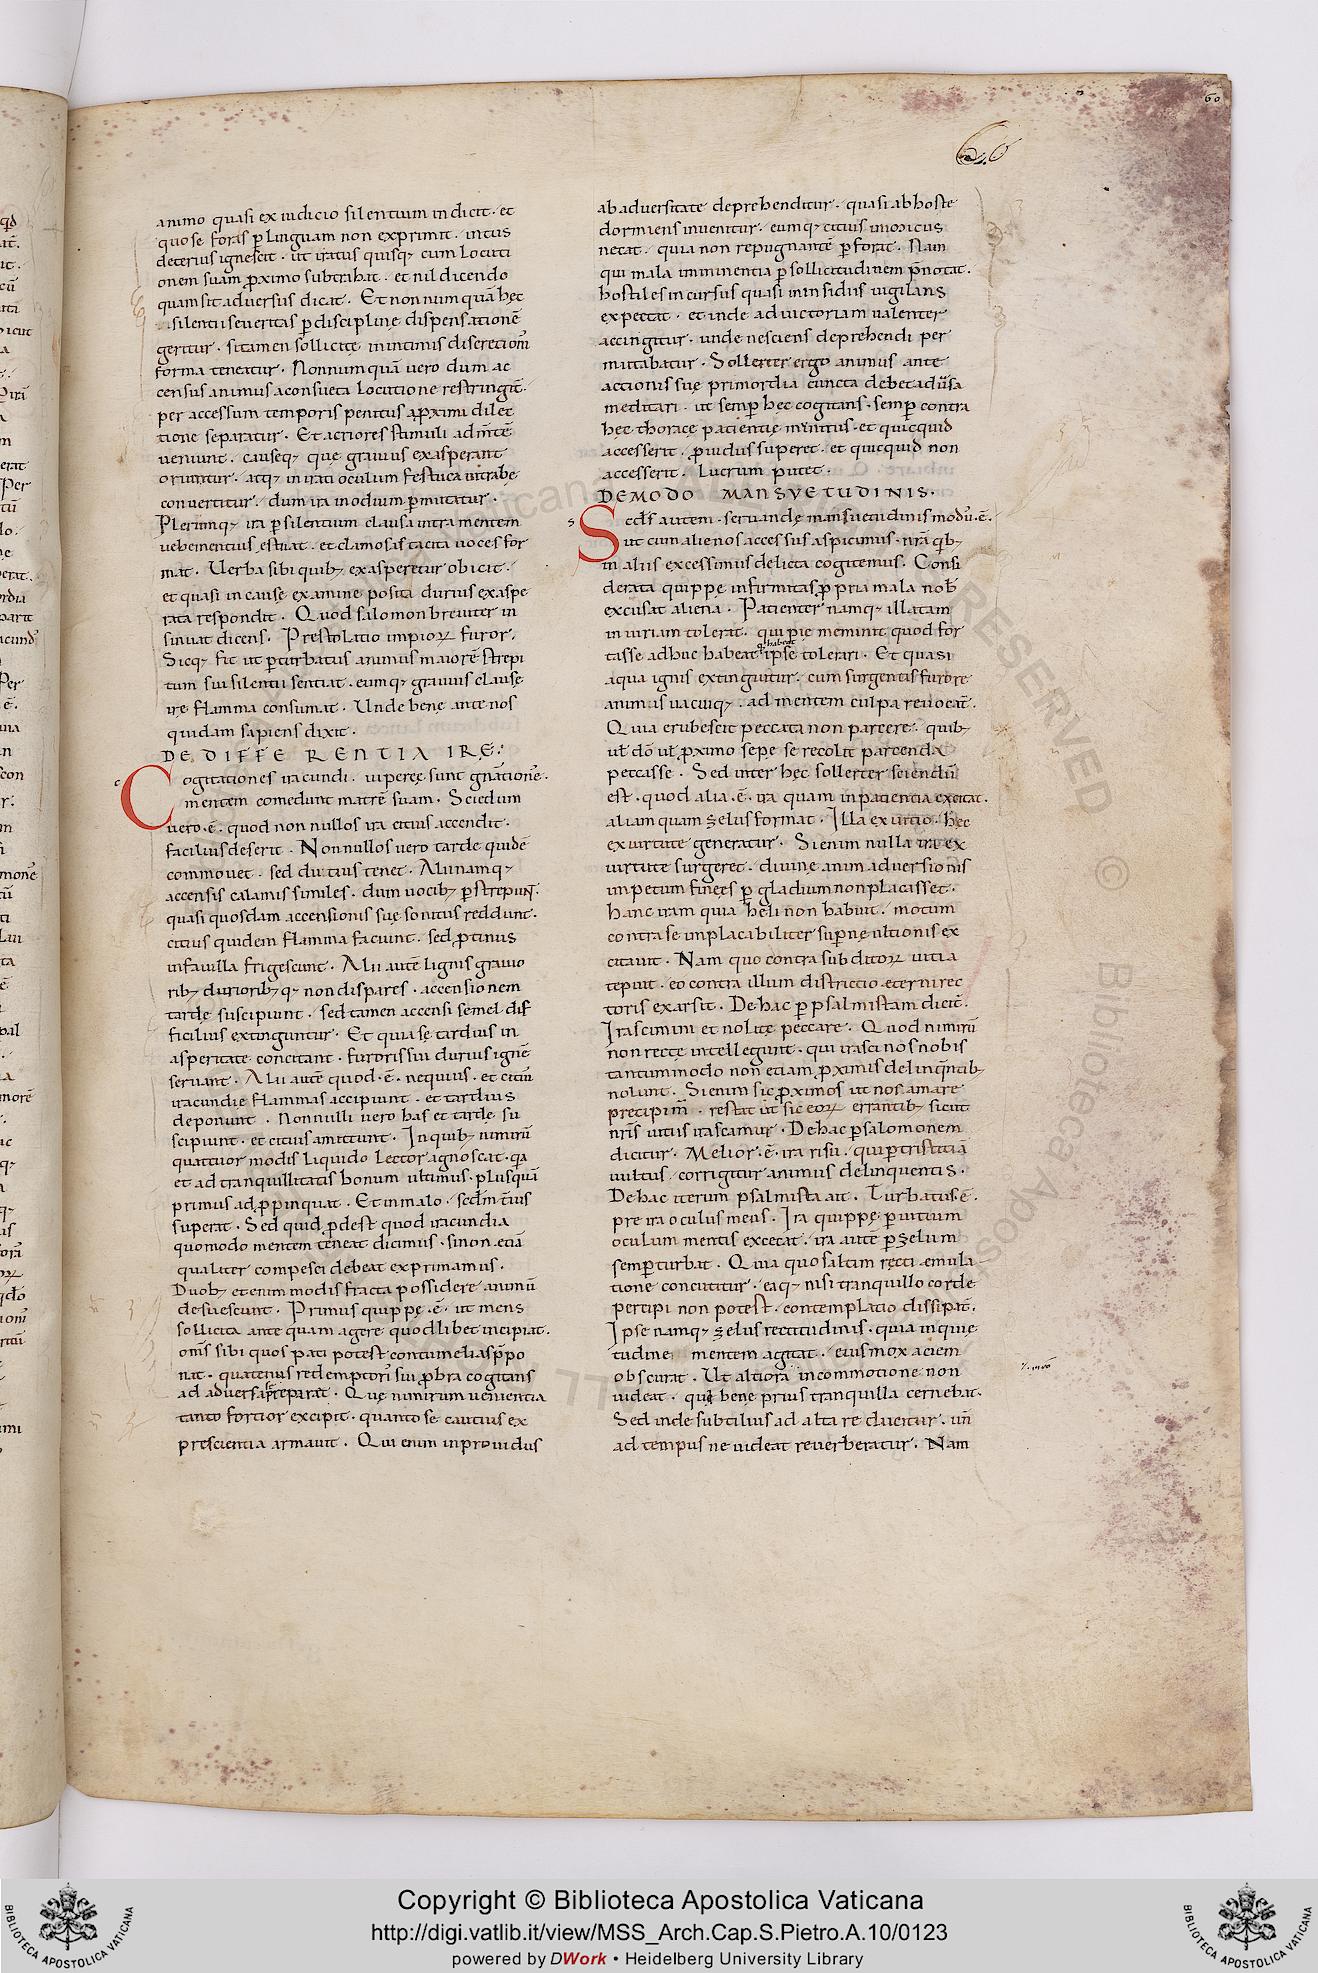 60
60
animo quasi ex iudicio silentium indicit · et
quo se foras p̄ linguam non exprimit · intus
deterius ignescit · ut iratus quisq; cum locuti
onem suam p̄ximo subtrahat · et nil dicendo
quam sit adversus dicat · Et non numquā hęc
silentii severitas p̄ disciplinę dispensationē
geritur · si tamen sollicite in intimis discretioñ
forma teneatur · Nonnumquā vero dum ac
census animus a consueta locutione restringit̄ ·
per accessum temporis penitus a p̄ximi dilec
tione separatur · Et acriores stimuli ad mtē
veniunt · causeq; quę gravius exasperant
oriuntur · atq; in irati oculum festuca in trabē
convertitur · dum ira in odium p̄mutatur ·
Plerumq; ira p̄ silentium clausa intra mentem
vehementius ęstuat · et clamosas tacita voces for
mat · Verba sibi quib; exasperetur obicit ·
et quasi in causę examine posita durius exaspe
rata respondit · Quod salomon breviter in
sinuat dicens · Prestolatio impioꝝ furor ·
Sicq; fit ut p̄turbatus animus maiorē strepi
tum sui silentii sentiat · eumq; gravius clausę
irę flamma consumat · Unde bene ante nos
quidam sapiens dixit ·
DE DIFFERENTIA IRĘ ·
c
Cogitationes iracundi · viperęę sunt gn̄ationę̄ ·
mentem comedunt matrē suam · Sciedum
vero · ē · quod non nullos ira citius accendit ·
facilius deserit · Nonnullos vero tarde quidē
commovet · sed diutius tenet · Alii namq;
accensis calamis similes · dum vocib; p̄strepunt ·
quasi quosdam accensionis suę sonitus reddunt ·
citius quidem flamma faciunt · sed p̄tinus
in favilla frigescunt · Alii autē lignis gravio
rib; duriorib;q; non dispares · accensionem
tarde suscipiunt · sed tamen accensi semel dif
ficilius extinguntur · Et quia sę tardius in
asperitate concitant · furoris sui durius ignē
servant · Alii autē quod · ē · nequius · et citius
iracundię flammas accipiunt · et tardius
deponunt · Nonnulli vero has et tardę su
scipiunt · et citius amittunt · In quib; nimirū
quattuor modis liquido lector agnoscat · q̄a
et ad tranquillitatis bonum ultimus · plusquā
primus ad p̄pinquat · Et in malo · sedm̄ t̄tius
superat · Sed quid p̄dest quod iracundia
quomodo mentem teneat dicimus · si non etiā
qualiter compesci debeat exprimamus ·
Duob; etenim modis fracta possidere animū
desuescunt · Primus quippę · ē · ut mens
sollicita ante quam agere quodlibet incipiat ·
om̄s sibi quos pati potest contumelias p̄po
nat · quatenus redemptoris sui p̄bra cogitans
ad adversa se preparat · Quę nimirum venientia
tanto fortior excipit · quanto se cautius ex
prescientia armavit · Qui enim inprovidus
ab adversitate deprehenditur · quasi ab hoste
dormiens invenitur · eumq; citius inimicus
necat · quia non repugnantē p̄forat · Nam
qui mala imminentia p̄ sollicitudinem p̄notat ·
hostiles incursus quasi in insidiis vigilans
expectat · et inde ad victoriam valenter
accingitur · unde nesciens deprehendi per
mittabatur · Sollerter ergo animus ante
actionis suę primordia cuncta debet adversa
meditari · ut semp̄ hęc cogitans · semp̄ contra
hęc thorace patientię munitus · et quicquid
accesserit · p̄vidus superet · et quicquid non
accesserit · lucrum putet ·
DE MODO MANSVETUDINIS ·
s
Secds̄ autem · servandę mansuetudinis modus̄ · ē ·
ut cum alienos accessus aspicimus · nr̄a q̄b;
in aliis excessimus delicta cogitemus · Consi
derata quippe infirmitas p̄pria mala nob̄
excusat aliena · Patienter namq; illatam
iniuriam tolerat · qui pie meminit quod for
tasse adhuc habeat q̄ habeat ipse tolerari · Et quasi
aqua ignis extinguitur · cum surgentis furore
animus uacuiq; · ad mentem culpa revocat̄ ·
Quia erubescit peccata non parcere · quib;
ul̄ dō ul̄ p̄ximo sępe se recolit parcenda
peccasse · Sed inter hęc sollerter sciendū
est · quod alia · ē · ira quam inpatientia excitat ·
aliam quam zelus format · Illa ex vitio · hęc
ex virtute generatur · Si enim nulla ira ex
virtute surgeret · divinę animadversionis
impetum finees p̄ gladium non placasset ·
Hanc iram quia heli non habuit · motum
contra se implacabiliter sup̄nę ultionis ex
citavit · Nam quo contra subditoꝝ vitia
tepuit · eo contra illum districtio ęterni rec
toris exarsit · De hac p̄ psalmistam dicit̄ ·
Irascimini et nolite peccare · Quod nimirū
non recte intellegunt · qui irasci nos nobis
tantummodo non etiam p̄ximis delinq̄ntib;
nolunt · Si enim sic p̄ximos ut nos amare
precipim̄ · restat ut sic eoꝝ errantib; sicut
nr̄is vitiis irascamur · De hac p̄ salomonem
dicitur · Melior · ē · ira risu · qui p̄ tristitiā
vultus · corrigitur animus delinquentis ·
De hac iterum psalmista ait · Turbatus ē ·
pre ira oculus meus · Ira quippe p̄ vitium
oculum mentis excecat · ira autē p̄ zelum
semp̄ turbat · Quia quo saltim recti ęmula
tione concutitur · eaq; nisi tranquillo corde
percipi non potest · contemplatio dissipat̄ ·
Ipse namq; zelus rectitudinis · quia inquie
tudine mentem agitat · eius mox aciem
obscurat · Ut altiora in commotione non
videat · quę bene prius tranquilla cernebat ·
Sed inde subtilius ad alta reducitur · un̄
ad tempus ne videat reverberatur · Nam
Copyright © Biblioteca Apostolica Vaticana
http://digi.vatlib.it/view/MSS_Arch.Cap.S.Pietro.A.10/0123
powered by DWork • Heidelberg University Library
BIBLIOTECA APOSTOLICA VATICANA
BIBLIOTECA APOSTOLICA VATICANA